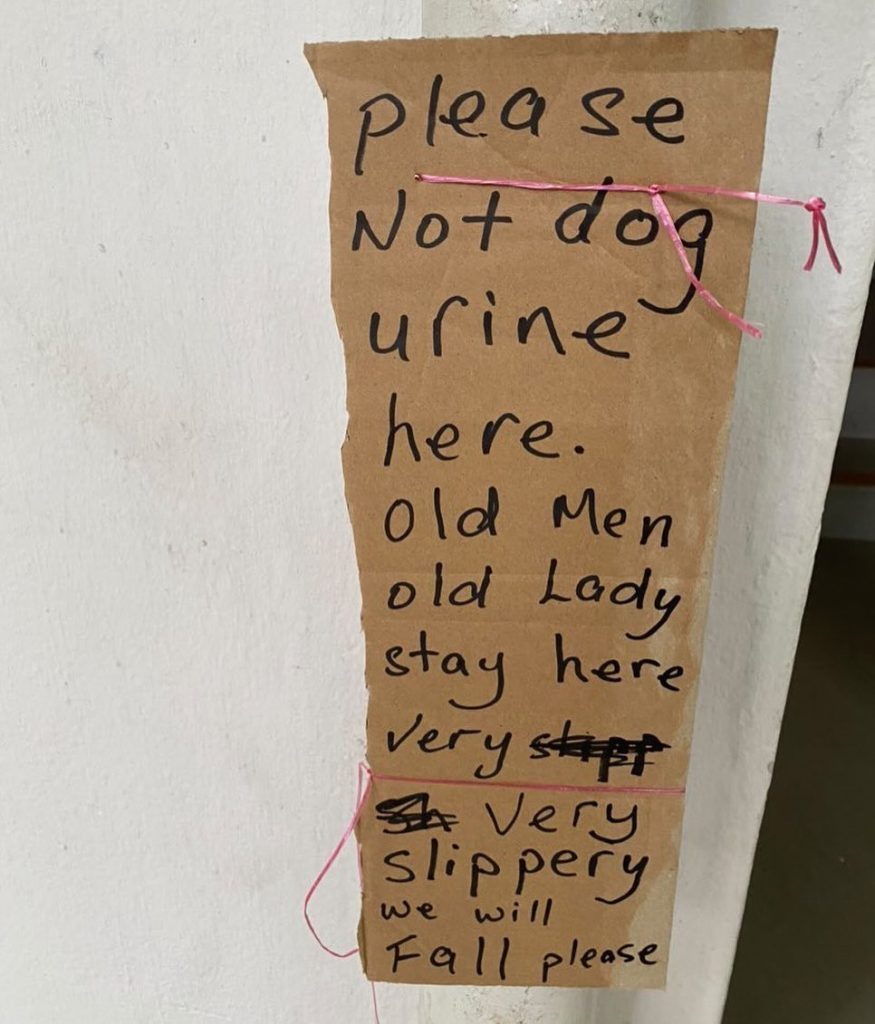 please
Not dog
urine
here.
Old Men
old Lady
stay here
very
Very
slippery
we will
Fall please